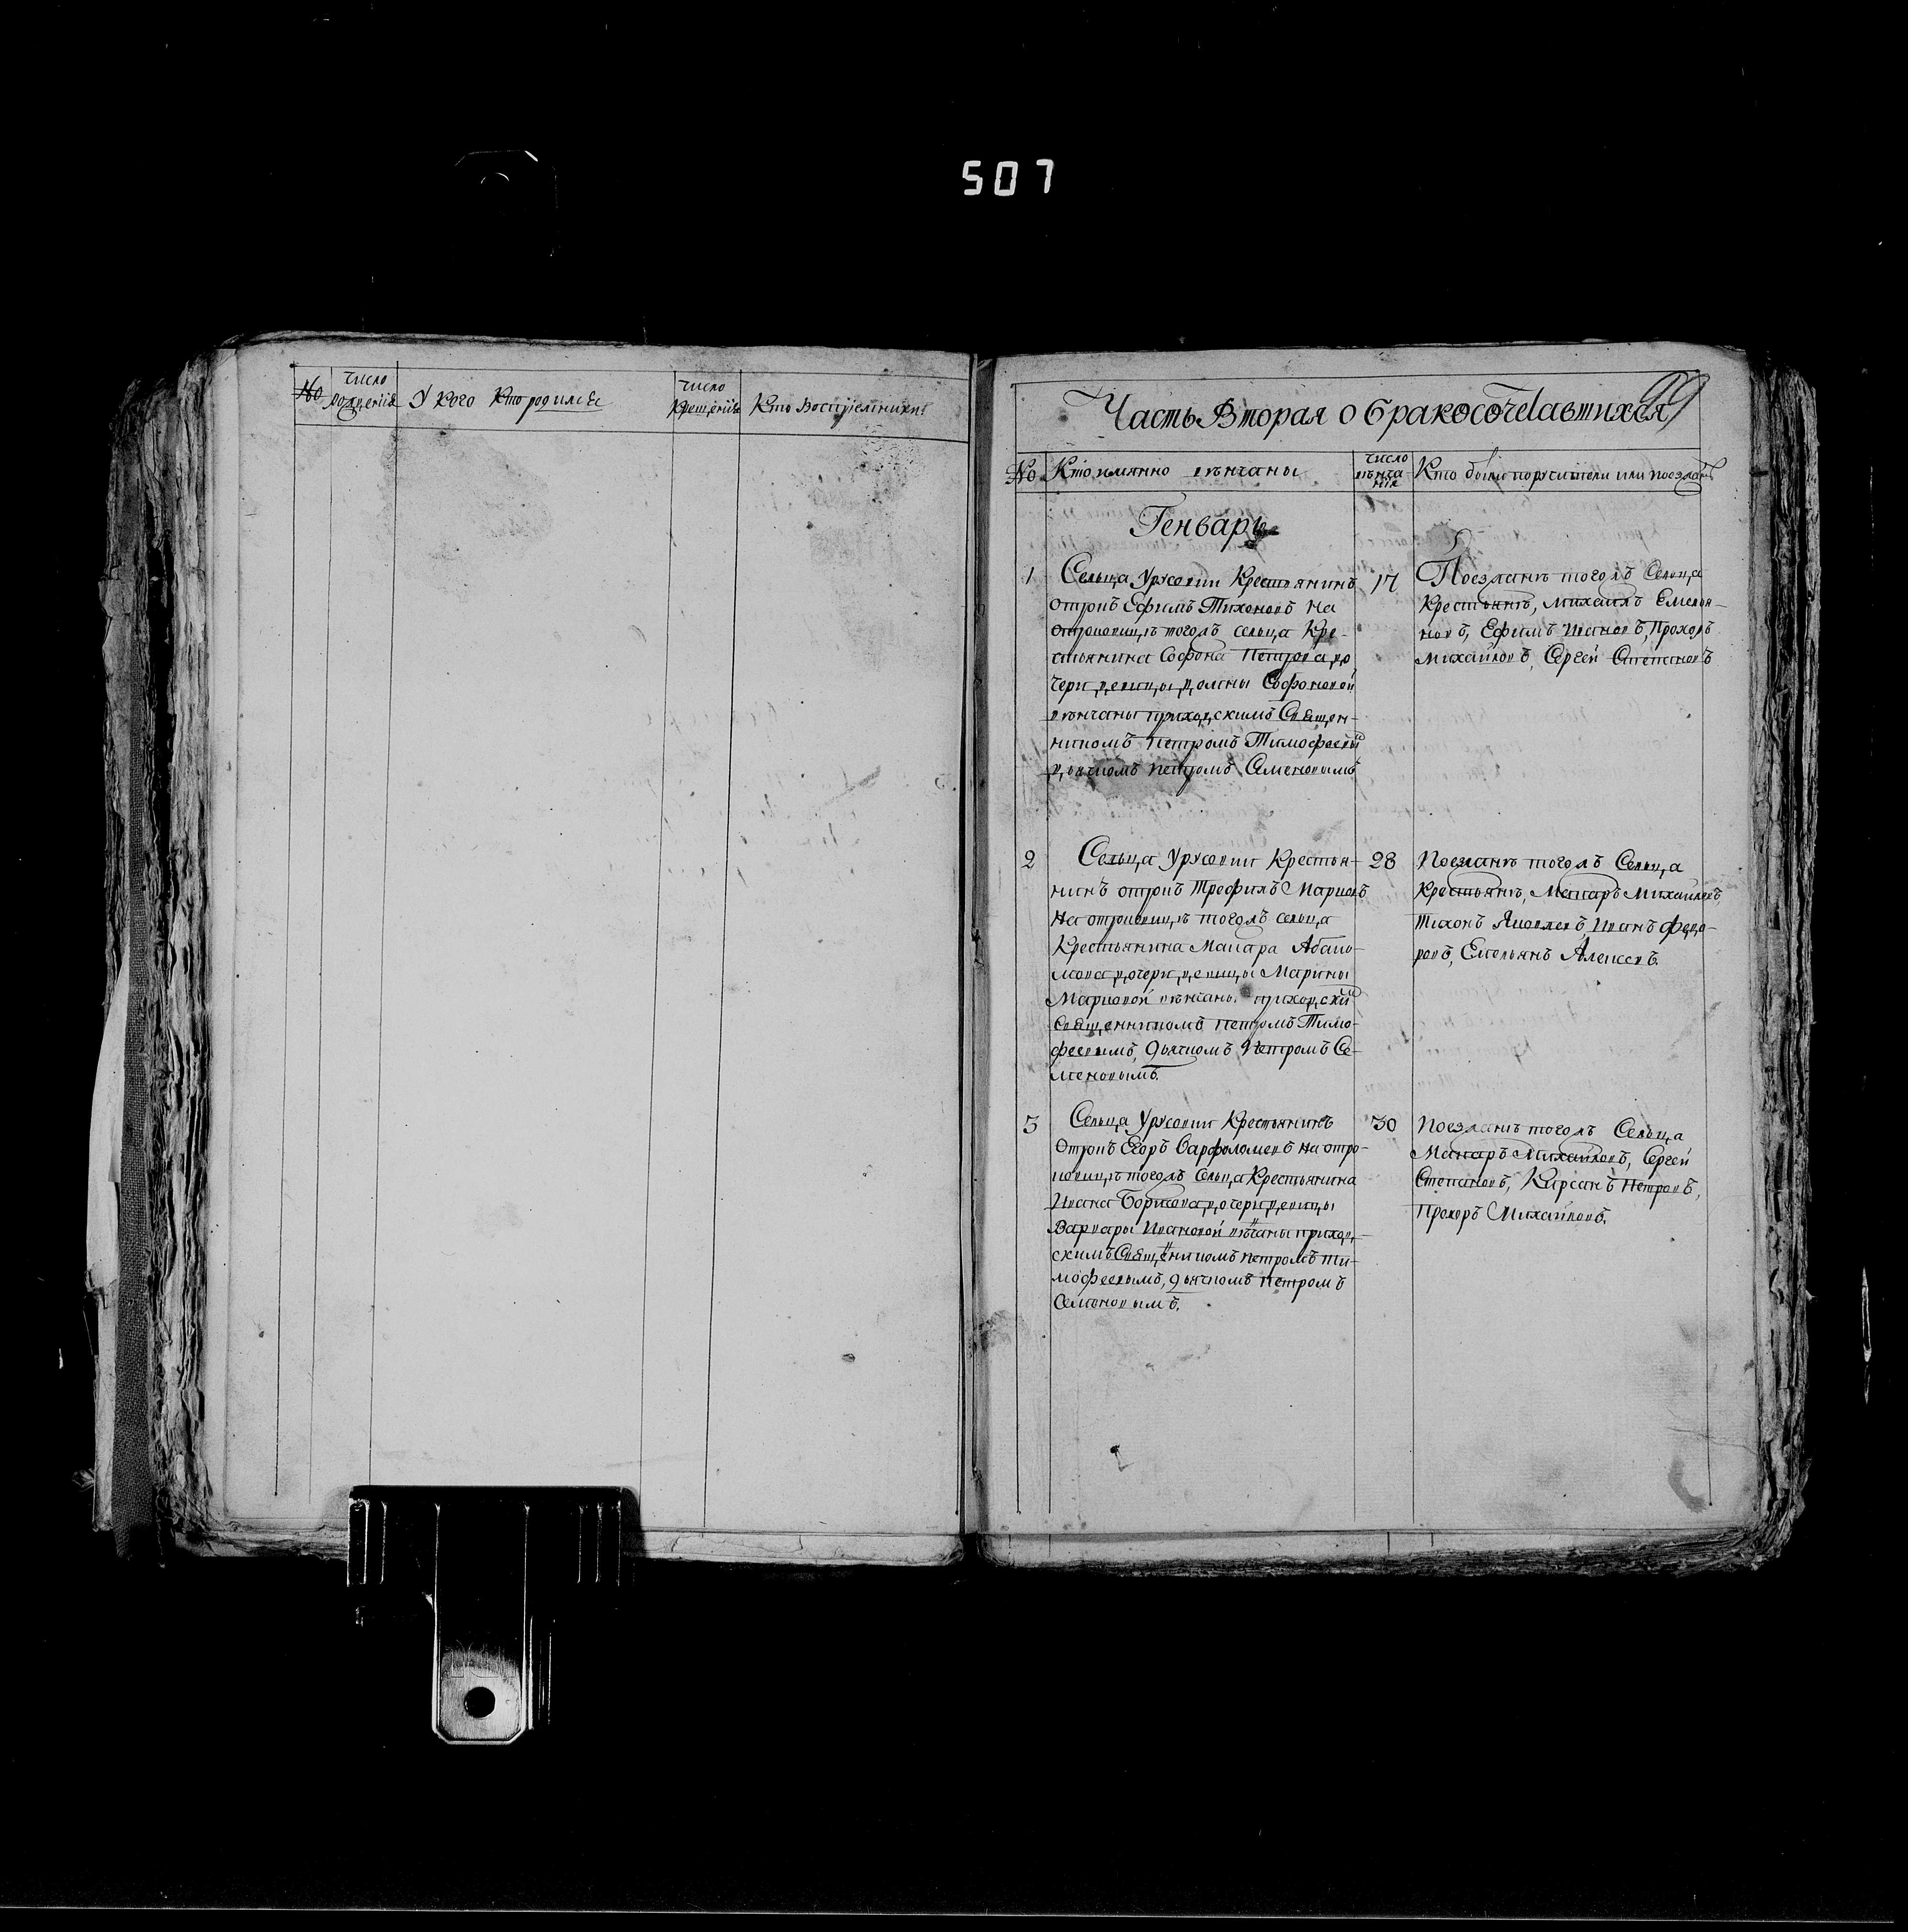 507
№
число рожденія
У кого кто родился
число крещенія
Кто воспріемники
99
Часть Вторая о бракосочетавшихся
№
Кто имянно венчаны
число венчанія
Кто были поручители или поезжаня
Генварь
1
Сельца Урусовки Крестьянинъ
отрокъ Ефимъ Тихоновъ на
отроковице тогожъ сельца Кре-
стьянина Софона Петрова до
чери девицы Домны Софоновой
венчаны приходскимъ Священ-
никомъ Петромъ Тимофеевы
дьячкомъ Петромъ Семеновымъ
17
Поезжане тогожъ Сельца
Крестьяне, Михаилъ Емелья-
новъ, Ефимъ Ивановъ, Прохоръ
Михайловъ, Сергей Степановъ
2
Сельца Урусовки Крестья-
нинъ отрокъ Трофимъ Марковъ
на отроковице тогожъ сельца
Крестьянина Макара
дочери девицы Марины
венчаны приходски
Священникомъ Петромъ Тимо-
феевымъ, дьячкомъ Петромъ Се-
меновымъ.
28
Поезжане тогожъ Сельца
Крестьяне, Макаръ Михайловъ,
Тихонъ Яковлевъ, Иванъ Федо-
ровъ, Емельянъ Алексеевъ.
3
Сельца Урусовки Крестьянинъ
Отрокъ Егоръ Варфоломеевъ на отро-
ковице тогожъ Сельца Крестьянина
Ивана Борисова дочери девицы
Варвары Ивановой венчаны приход-
скимъ Священникомъ Петромъ Ти-
мофеевымъ, дьячкомъ Петромъ
Семеновымъ.
30
Поезжане тогожъ Сельца
Макаръ Михайловъ, Сергей
Степановъ, Кирсанъ Петровъ,
Прохоръ Михайловъ.